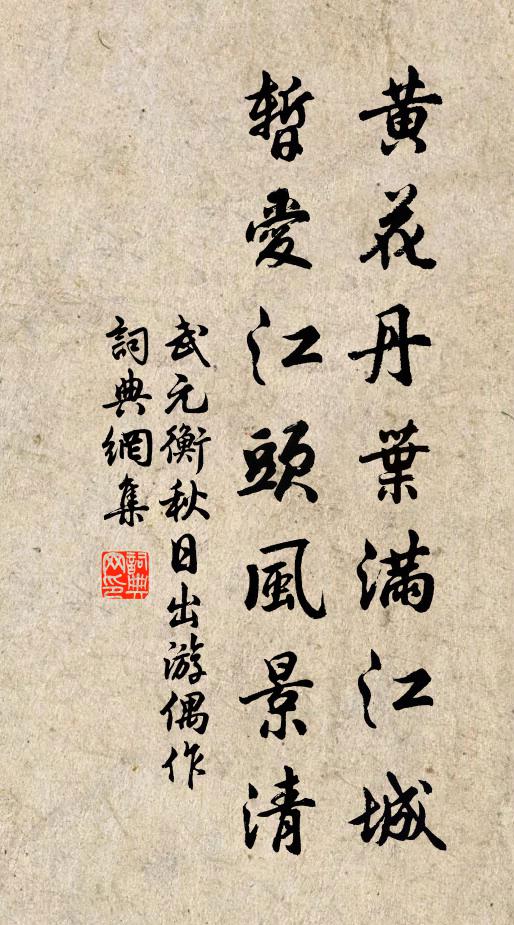 黄花丹葉滿江城
暫愛江頭風景清
武元衡秋日出游偶作
詞典網集
詞典网印